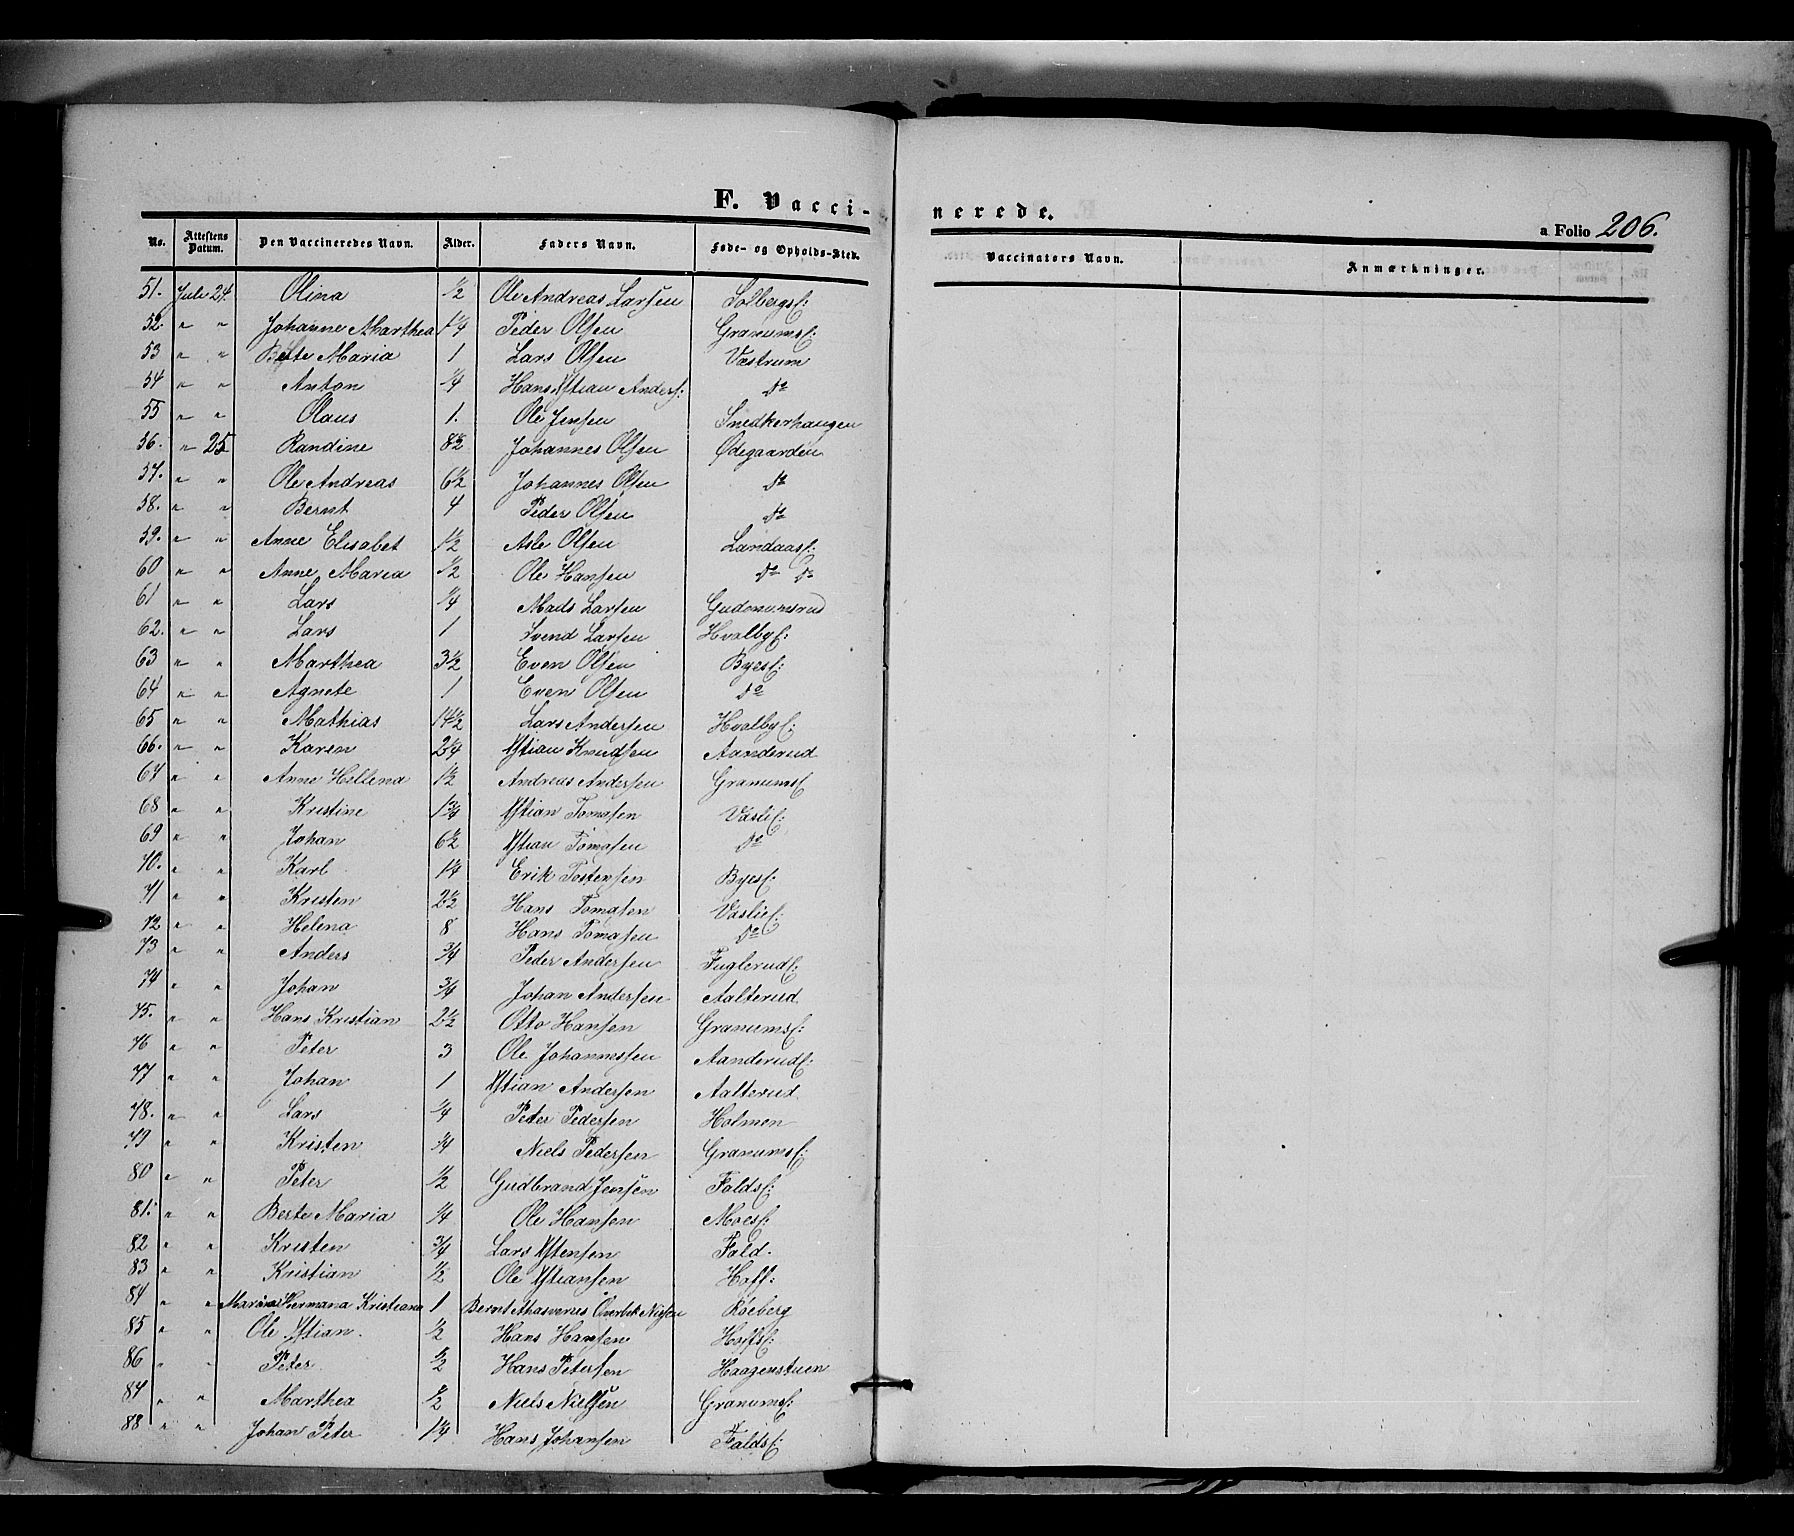 F. Vacci-
nerede.
a Folio 206.
No. Attestens Datum. Den Vaccineredes Navn. Alder. Faders Navn. Føde- og Opholds-Sted. Vaccinators Navn. Anmærkninger.
51. Juli 24. Olina 1/2 Ole Andreas Larsen Solbergsf:
52. " " Johanne Marthea 1 1/4 Peder Olsen Granumsf:
53 " " Beste Maria 1 Lars Olsen Væstrum
54 " " Anton 1/4 Hans Xstian Anders: do
55 " " Olaus 1. Ole Jensen Snedkerhaugen
56. " 25 Randine 8 1/2 Johannes Olsen Ødegaarden
57. " " Ole Andreas 6 1/2 Johannes Olsen do
58. " " Bernt 4 Peder Olsen do
59. " " Anne Elisabet 1 1/2 Asle Olsen Landaasf:
60 " " Anne Maria 1/2 Ole Hansen do do
61 " " Lars 1/4 Mads Larsen Gudmunsrud
62. " " Lars 1 Svend Larsen Hvalbyf:
63 " " Marthea 3 1/2 Even Olsen Byesf:
64 " " Agnete 1 Even Olsen do
65 " " Mathias 14 1/2 Lars Andersen Hvalbyf:
66. " " Karen 2 1/4 Xstian Knudsen Aanderud
67 " " Anne Hellena 1 1/2 Andreas Andersen Granumsf
68 " " Kristine 1 3/4 Xstian Tomasen Vaslief:
69 " " Johan 6 1/2 Xstian Tomasen do
70. " " Karl 1 1/4 Erik Tostensen Byesf:
71 " " Kristen 2 1/2 Hans Tomasen Vaslief:
72 " " Helena 8 Hans Tomasen do
73 " " Anders 3/4 Peder Andersen Fuglerudf:
74 " " Johan 3/4 Johan Andersen Aalterud
75. " " Hans Kristian 2 1/2 Otto Hansen Granumsf:
76 " " Peter 3 Ole Johannessen Aanderudf:
77 " " Johan 1 Xstian Andersen Aalterud
78. " " Lars 1/4 Peter Pedersen Holmen
79 " " Kristen 3/4 Niels Pedersen Granumsf:
80 " " Peter 1/2 Gudbrand Jensen Faldsf:
81. " " Berte Maria 1/4 Ole Hansen Moesf:
82 " " Kristen 3/4 Lars Xstensen Fald.
83 " " Kristian 1/2 Ole Xstiansen Hoff:
84 " " Hermana Kristiana 1 Bernt Ahasverus Overbek Nielsen Røeberg
85 " " Ole Xstian. 1/2 Hans Hansen Hoffsf:
86 " " Peter 1/2 Hans Petersen Haagenstuen
87 " " Marthea 1/2 Niels Nielsen Granumsf:
88 " " Johan Peter 1 1/4 Hans Johansen Faldsf: